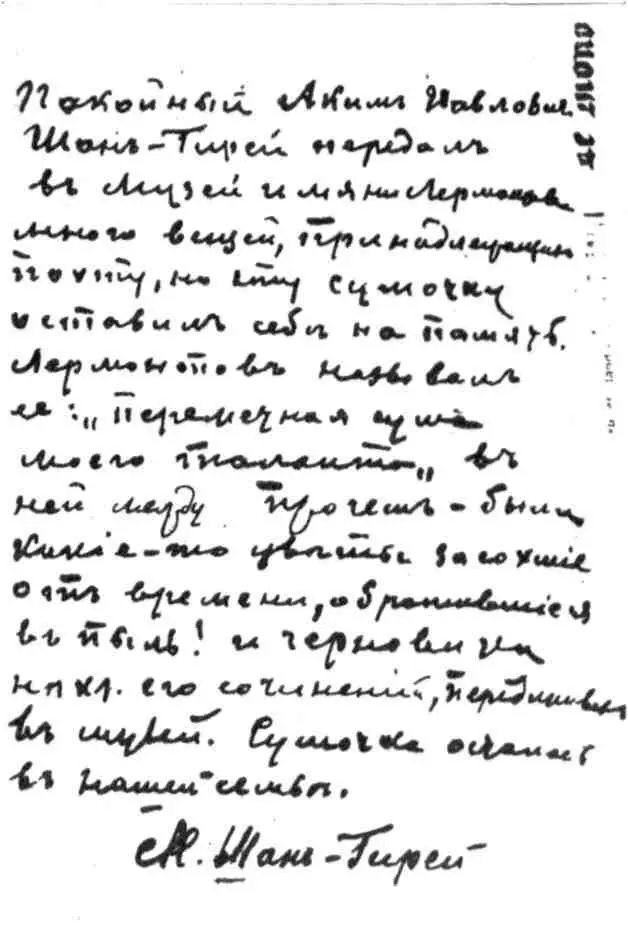 Покойный Акимъ Павлович
Шанъ-Гирей передалъ
въ Музей имяни Лермонтова
много вещей, принадлежащих
поэту, но эту сумочку
оставилъ себѣ на память.
Лермонтовъ называлъ
ее: „Переметная сума
моего таланта„ въ
ней между прочемъ - были
какіе-то цвѣты засохшіе
отъ времени, обратившіеся
въ пыль! и черновики
нѣкот. его сочиненій,
въ музей. Сумочка осталась
въ нашей семьѣ.
М. Шанъ-Гирей